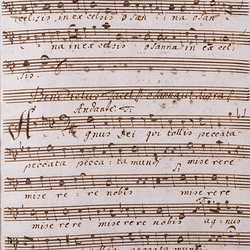 celsis in excelsis osan: na osan:
na in excelsis osanna in excel:
sis.
Benedictus tacet
Andante.
Agnus Dei qui tollis peccata
peccata pecca: ta mundi miserere
misere re nobis miserere
miserere nobis miserere nobis agnus